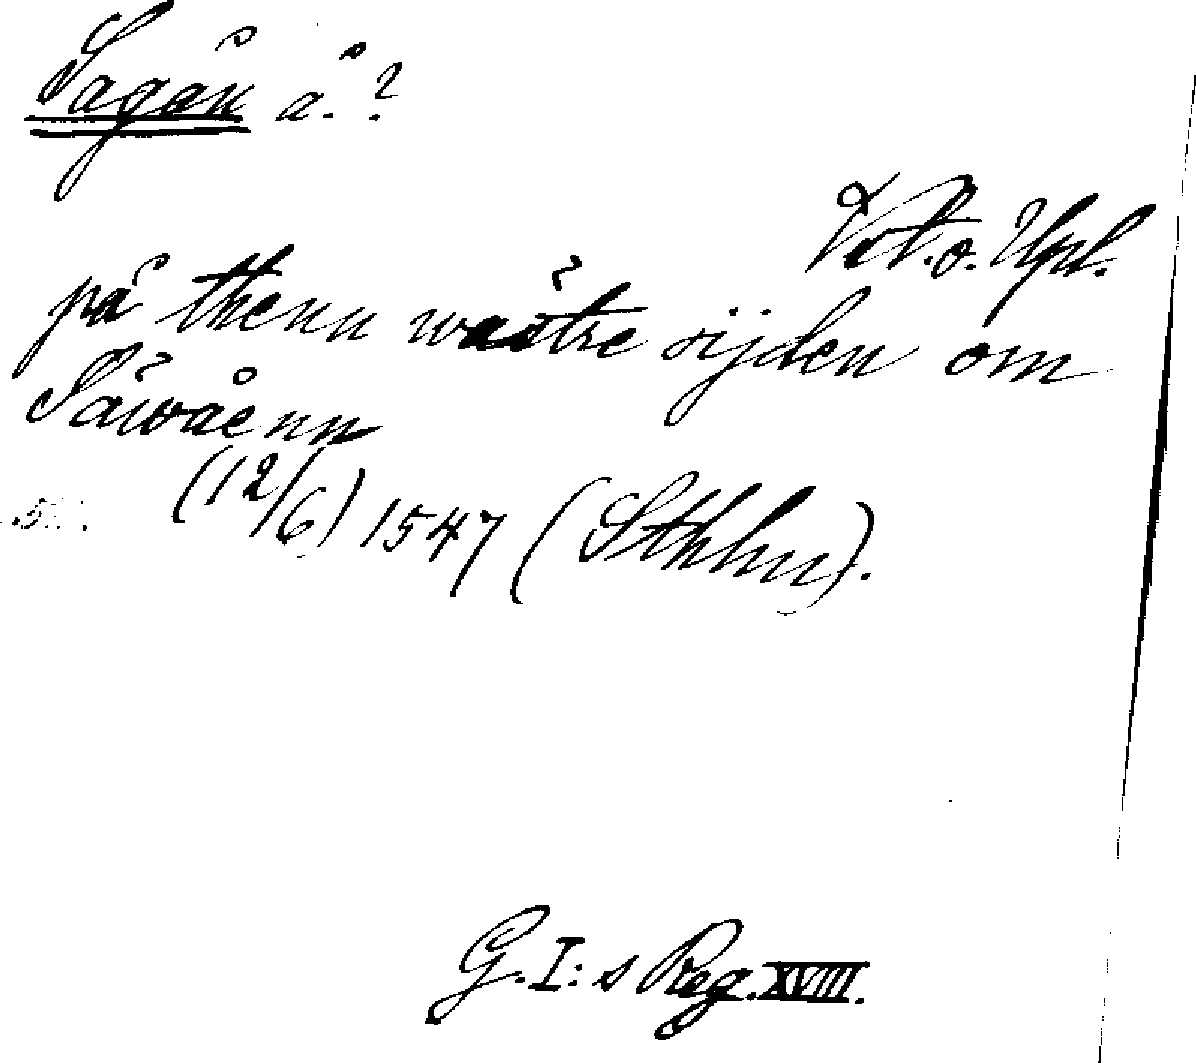 Sagån å.?
Vstm. o. Upl.
på thenn wästre sijden om
Säwåenn
(12/6) 1547 (Sthlm).
G. I:s Reg. XVIII.